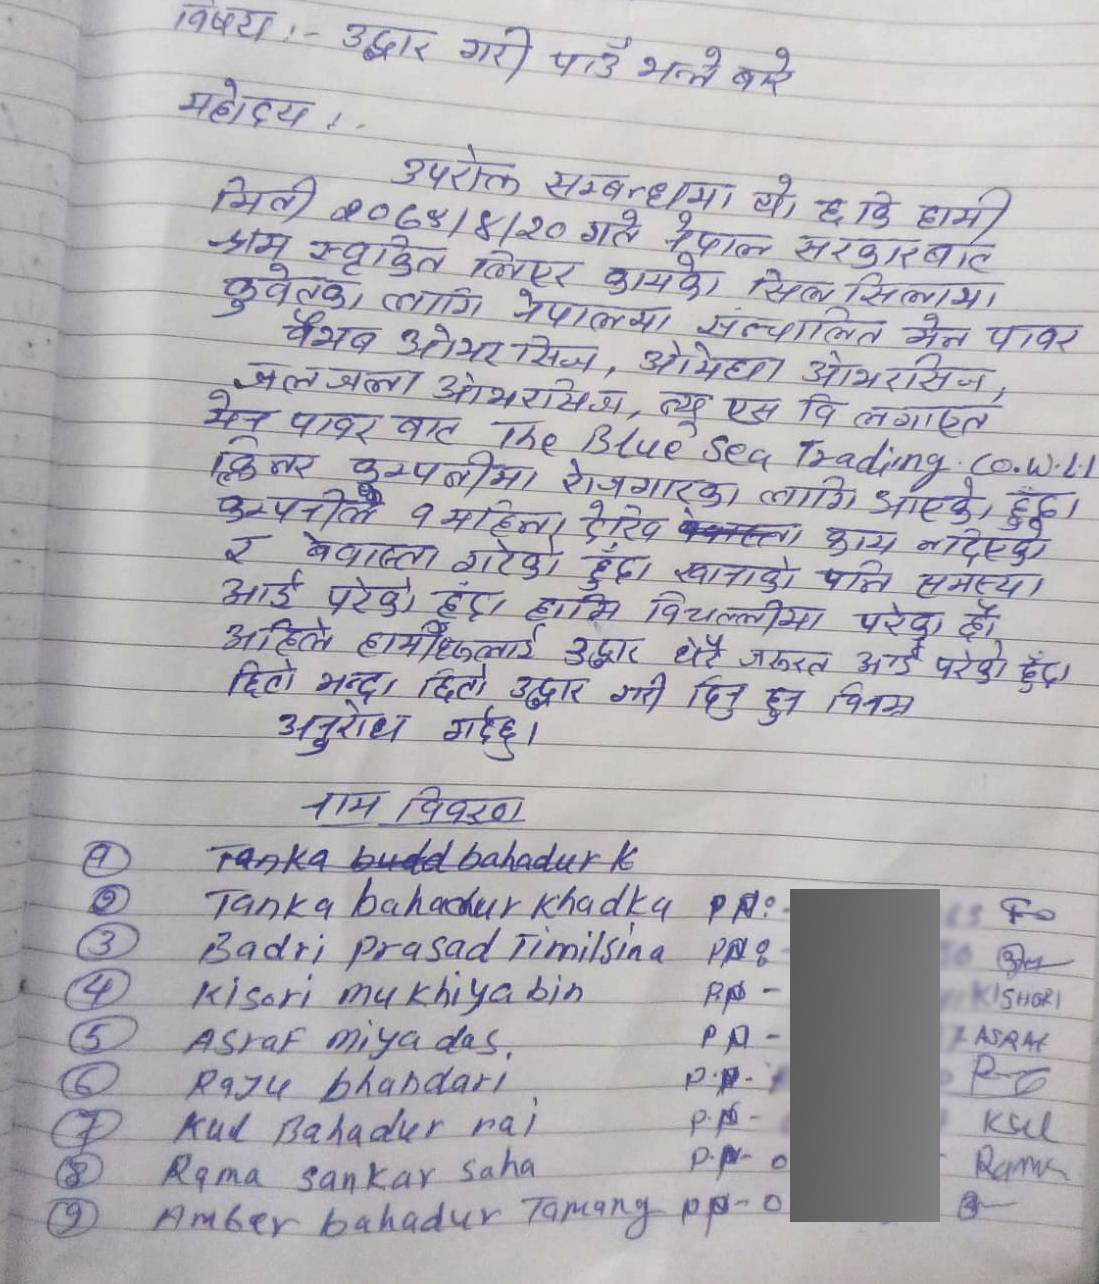 विषय :- उद्धार गरी पाउँ भन्ने बारे
महोदय :-
उपरोक्त सम्बन्धमा यो छ कि हामी
मिती २०७४/४/२० गते नेपाल सरकारबाट
श्रम स्वृकित लिएर कामको सिलसिलामा
कुवेतका लागि नेपालमा संत्चालित मेन पावर
वैभब ओभरसिज, ओमेगा ओभरसिज,
जलजला ओभरसिज, न्यू एस वि लगाएत
मेन पावर बाट The Blue Sea Trading. Co. W.L.L
क्लिनर कम्पनीमा रोजगारका लागि आएको हुँदा
कम्पनीले १ महिना देखि काम नदिएको
र बेवास्ता गरेको हुँदा खानाको पनि समस्या
आई परेको हुंदा हामि विचल्लीमा परेका छौं
अहिले हामीहरुलाई उद्धार धेरै जरुरत आई परेको हुँदा
छिटो भन्दा छिटो उद्धार गरी दिनु हुन विनम्र
अनुरोध गर्दछु।
नाम विवरण
१ Tanka budd bahadur K
२ Tanka bahadur Khadka PN:-
3 Badri prasad Timilsina PN:-
4 Kisori mukhiya bin PP - KISHORI
5 Asraf miya das. PN - ASRAF
6 Raju bhandari P.P.-
7 Kul Bahadur rai P.P - Kul
8 Rama sankar saha P.P- 0 Rama
9 Amber bahadur Tamang PP- 0